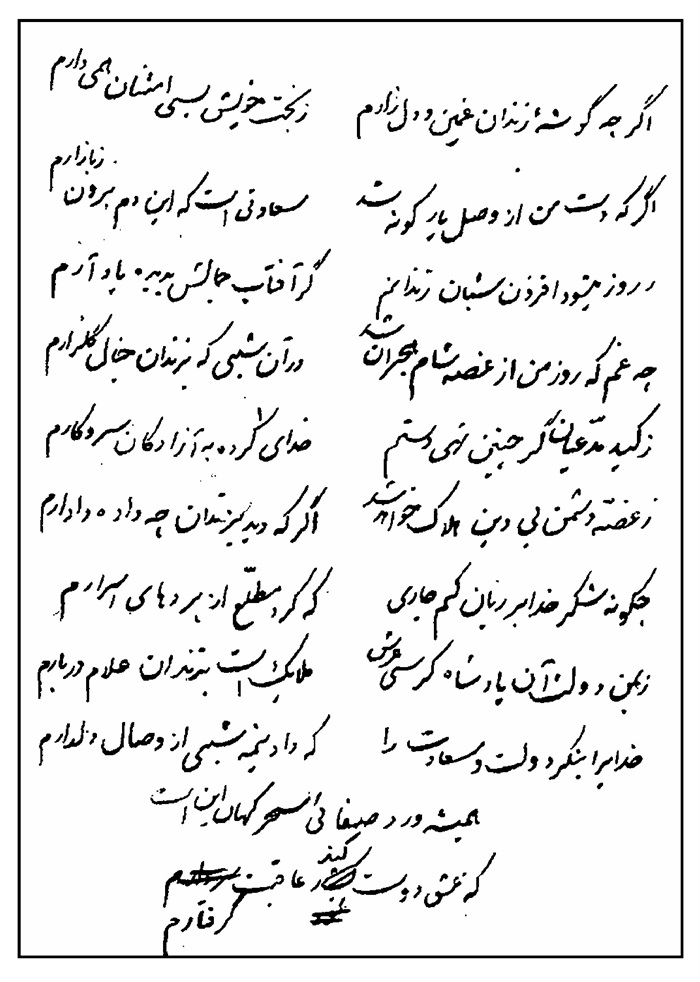 اگر چه گوشهٔ زندان غمین و دل زارم
ز بخت خویش بسی امتنان همی دارم
اگر که دست من از وصل یار کوته شد
سعادتی است که این دم برون ز بازارم
روز میشود افزون شبان زندانم
گر آفتاب جمالش بدیده یاد آرم
چه غم که روز من از غصه شام هجران شد
در آن شبی که بزندان خیال گلزارم
ز کید مدّعیان گر چنین تهی دستم
خدای کرده به آزادگان سر و کارم
ز غصّه دشمن بی دین هلاک خواهد شد
اگر که دید بزندان چه داده دادارم
چگونه شکر خدا بر زبان کنم جاری
که کرد مطّلع از پرده‌های اسرارم
زیمن دولت آن پادشاه کرسی عرش
ملایک است بزندان غلام دربارم
خدایرا بنگر دولت و سعادت را
که داد نیمه شبی از وصال دلدارم
همیشه ورد صیفانی اسحر گهان این است
که عشق دوست کند عاقبت گرفتارم